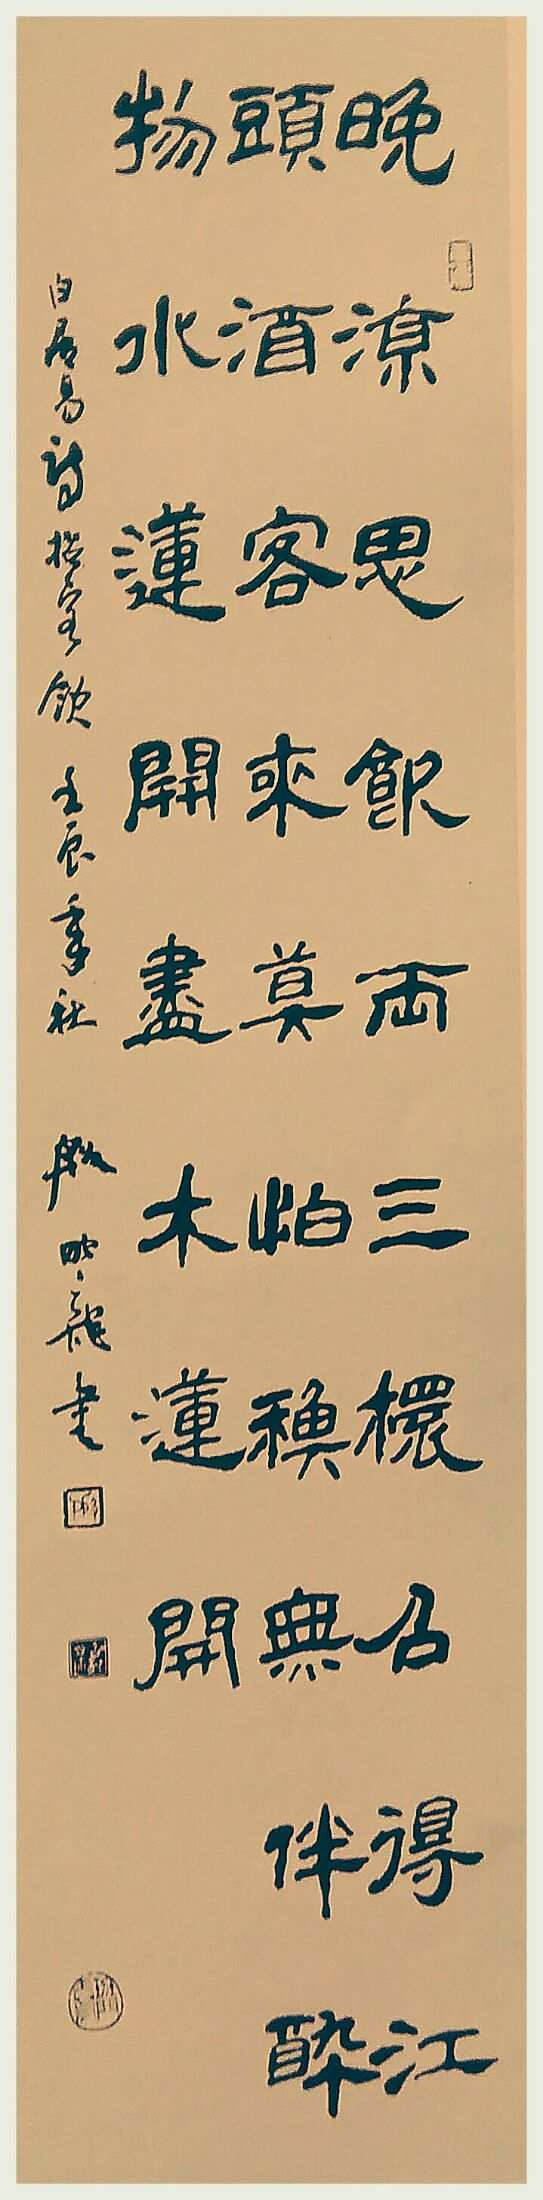 晚涼思飲両三召得江
頭酒客來莫怕秋無伴醉
物水蓮開盡木蓮開
白居易詩招客飲 壬辰年 龍書